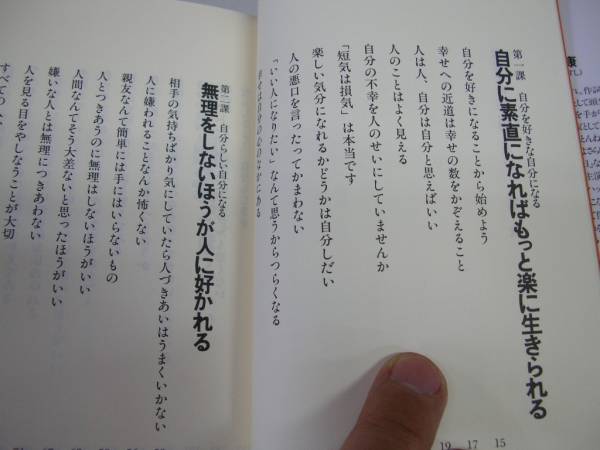 第一課 自分を好きな自分になる
自分に素直になればもっと楽に生きられる
自分を好きになることから始めよう
幸せへの近道は幸せの数をかぞえること
人は人、自分は自分と思えばいい
人のことはよく見える
自分の不幸を人のせいにしていませんか
「短気は損気」は本当です
楽しい気分になれるかどうかは自分しだい
人の悪口を言ったってかまわない
「いい人になりたい」なんて思うからつらくなる
幸せは自分の心のなかにある
15
17
19
第二課 自分らしい自分になる
無理をしないほうが人に好かれる
相手の気持ちばかり気にしていたら人づきあいはうまくいかない
人に嫌われることなんか怖くない
親友なんて簡単には手にはいらないもの
人とつきあうのに無理はしないほうがいい
人間なんてそう大差ないと思ったほうがいい
嫌いな人とは無理につきあわない
人を見る目をやしなうことが大切
すべての